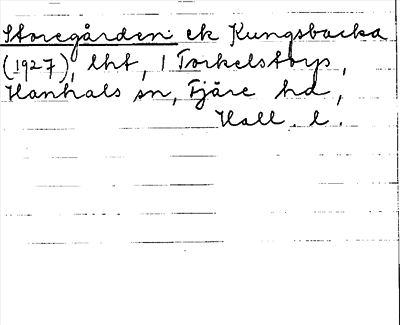 Storegården ek Kungsbacka
(1927), lht, 1 Torkelstorp,
Hanhals sn, Fjäre hd,
Hall. l.